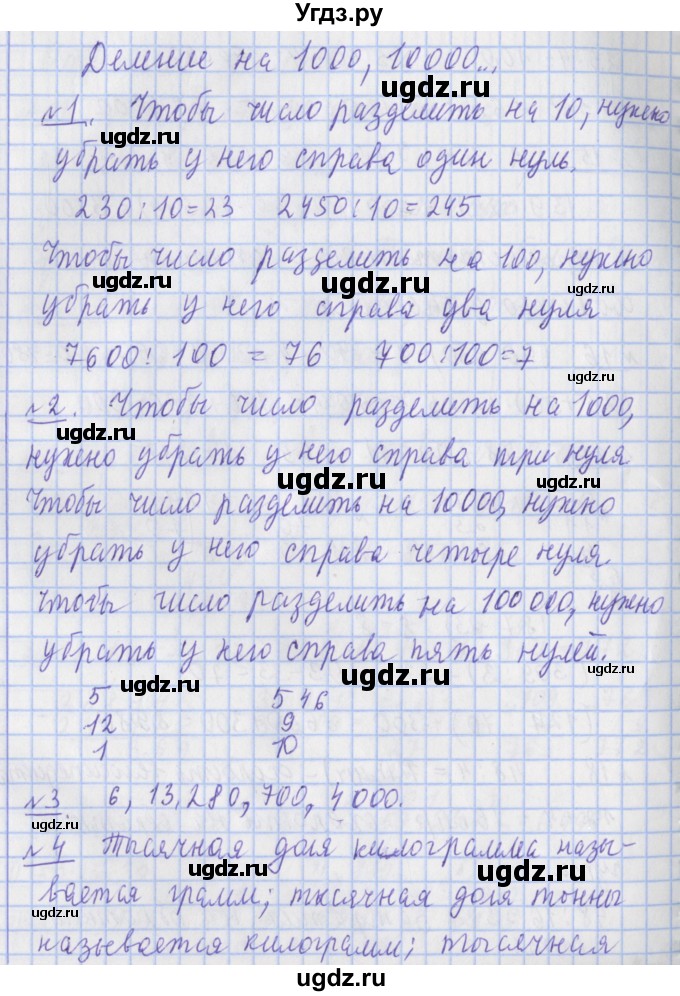 Угдз.ру
Деление на 1000, 10000...
ugdz.ru
№1. Чтобы число разделить на 10, нужно
ugdz.ru ugdz.ru
убрать у него справа один нуль.
ugdz.ru
230:10=23 2450:10=245
Чтобы число разделить на 100, нужно
ugdz.ru ugdz.ru
убрать у него справа два нуля
7600: 100 = 76 700:100=7
ugdz.ru
№2. Чтобы число разделить на 1000,
ugdz.ru
нужно убрать у него справа три нуля
ugdz.ru ugdz.ru
Чтобы число разделить на 10000, нужно
убрать у него справа четыре нуля.
ugdz.ru ugdz.ru
Чтобы число разделить на 100000, нужно
убрать у него справа пять нулей.
ugdz.ru ugdz.ru
5 546
12 9
1 10
ugdz.ru
№3 6, 13, 280, 700, 4000.
ugdz.ru
№4 Тысячная доля килограмма назы-
ugdz.ru
вается грамм; тысячная доля тонны
ugdz.ru
называется килограмм; тысячная
ugdz.ru